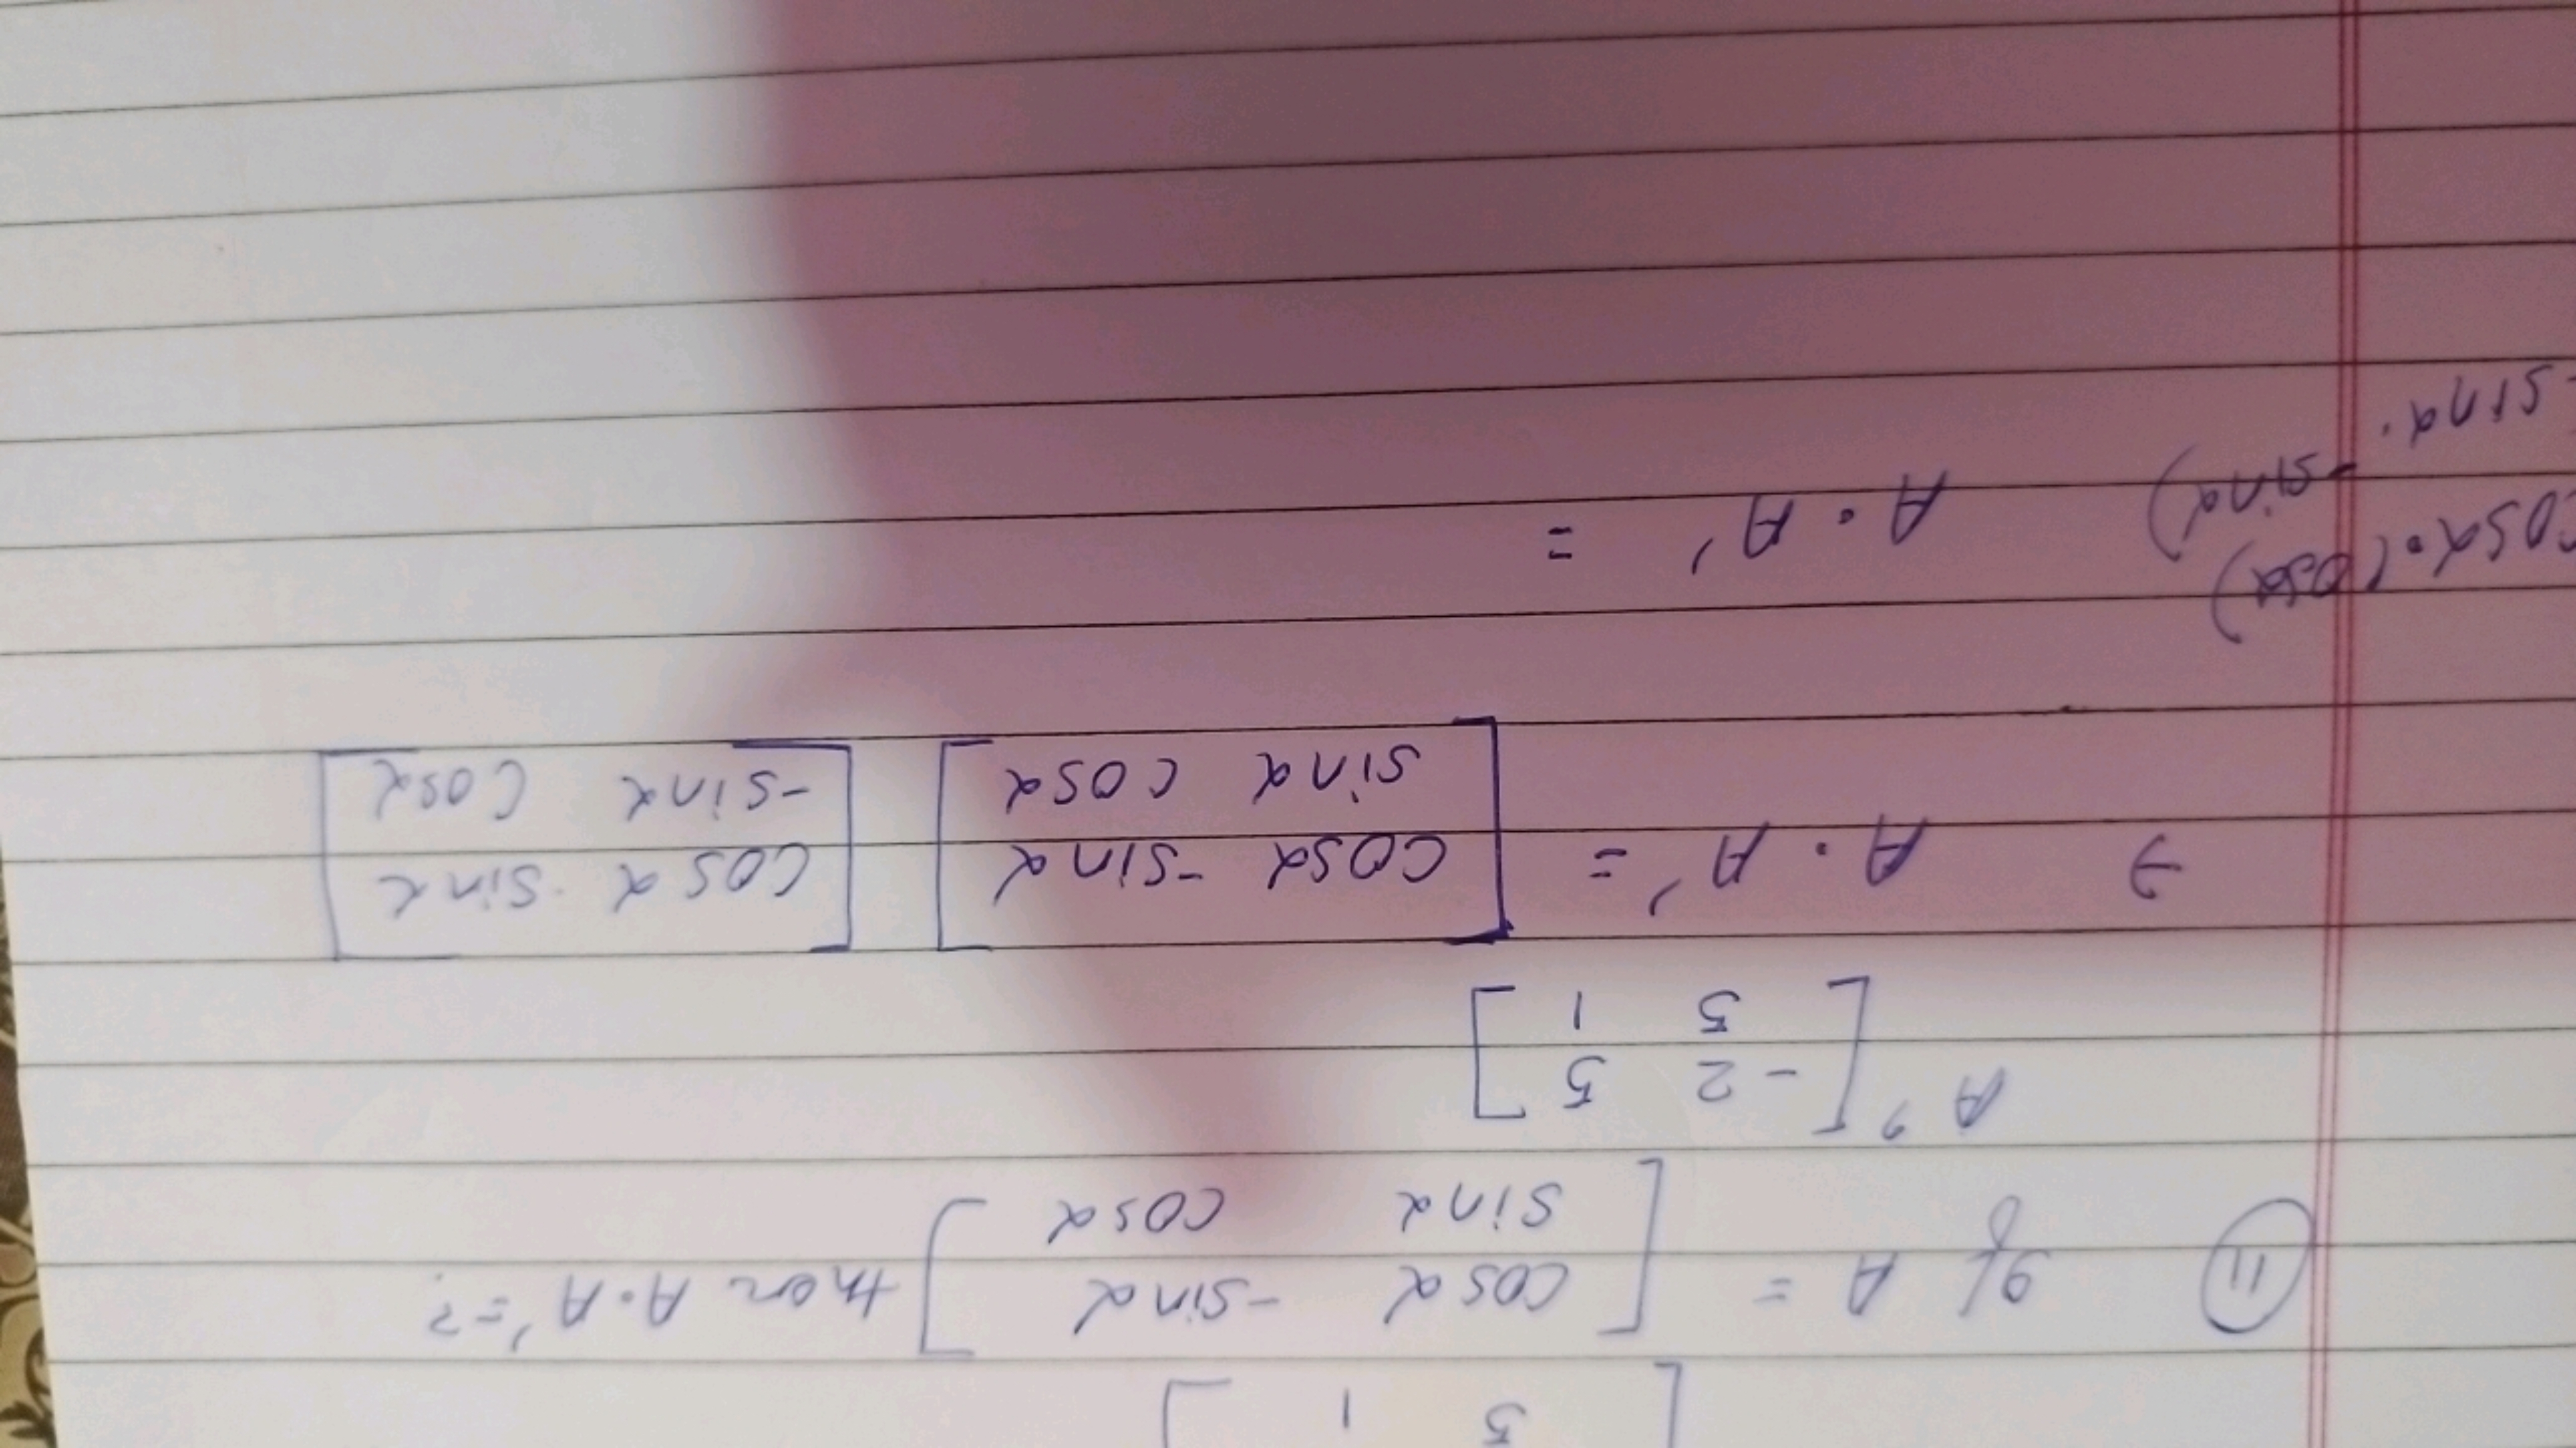 5 1
(11) If A = [ cosα -sinα
sinα cosα ] then A·A' = ?
A' [ -2 5
5 1 ]
→ A·A' = [ cosα -sinα ] [ cosα sinα ]
[ sinα cosα ] [ -sinα cosα ]
cosα·(cosα)
-sinα) A·A' =
-sinα·